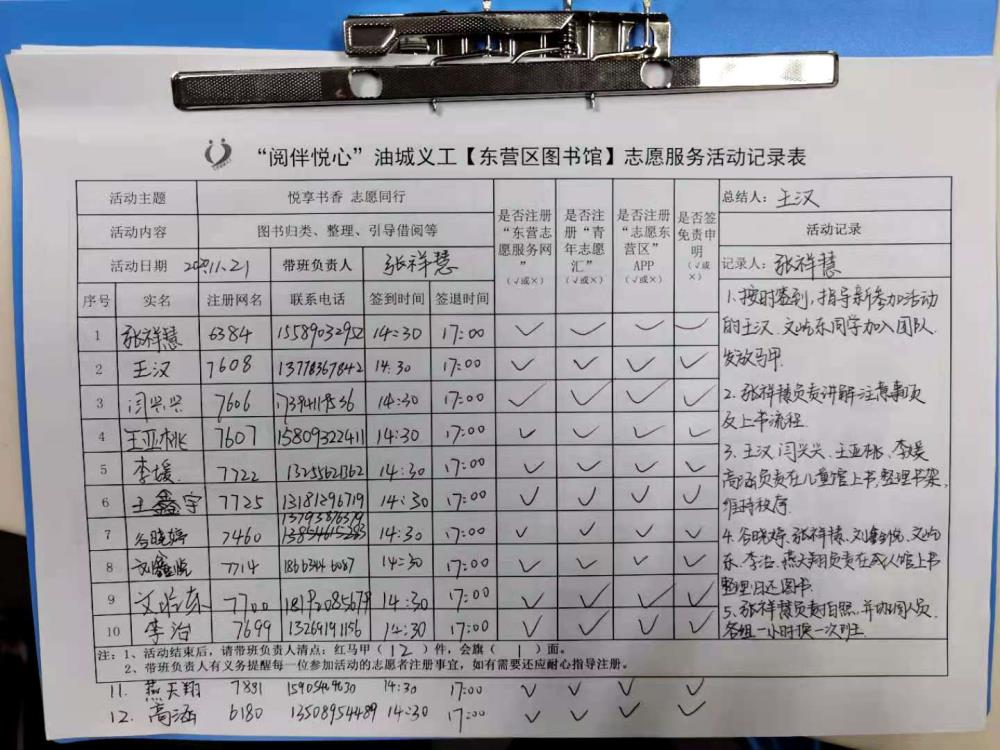 “阅伴悦心”油城义工【东营区图书馆】志愿服务活动记录表
活动主题 悦享书香 志愿同行 是否注册“东营志愿服务网”(√或×) 是否注册“青年志愿汇”(√或×) 是否注册“志愿东营区”APP(√或×) 是否签免责申明(√或×) 总结人：王汉
活动内容 图书归类、整理、引导借阅等 活动记录
活动日期 2020.11.21 带班负责人 张祥慧 记录人：张祥慧
序号 实名 注册网名 联系电话 签到时间 签退时间
1 张祥慧 6384 15589032952 14:30 17:00 ✓ ✓ ✓ ✓
2 王汉 7608 13778367842 14:30 17:00 ✓ ✓ ✓ ✓
3 闫兴兴 7606 14:30 17:00 ✓ ✓ ✓ ✓
4 王亚桃 7607 15809322411 14:30 17:00 ✓ ✓ ✓ ✓
5 李媛 7222 13255621362 14:30 17:00 ✓ ✓ ✓ ✓
6 王鑫宇 7725 13181296719 14:30 17:00 ✓ ✓ ✓ ✓
7 谷晓婷 7460 14:30 17:00 ✓ ✓ ✓ ✓
8 刘鑫悦 7714 14:30 17:00 ✓ ✓ ✓ ✓
9 文屿东 7700 14:30 17:00 ✓ ✓ ✓ ✓
10 李治 7699 13269191156 14:30 17:00 ✓ ✓ ✓ ✓
1、按时签到，指导新参加活动
的王汉、文屿东同学加入团队
发放马甲.
2、张祥慧负责讲解注意事项
及上书流程.
3、王汉、闫兴兴、王亚桃、李媛
高涵负责在儿童馆上书,整理书架,
维持秩序.
4、谷晓婷、张祥慧、刘鑫悦、文屿
东、李治、燕天翔负责在成人馆上书
整理归还图书.
5、张祥慧负责拍照,并协调人员.
各组一小时换一次班.
注：1、活动结束后，请带班负责人清点：红马甲（ 12 ）件，会旗（ 1 ）面。
2、带班负责人有义务提醒每一位参加活动的志愿者注册事宜，如有需要还应耐心指导注册。
11. 燕天翔 7881 15905469630 14:30 17:00 ✓ ✓ ✓ ✓
12. 高涵 6180 13508954489 14:30 17:00 ✓ ✓ ✓ ✓